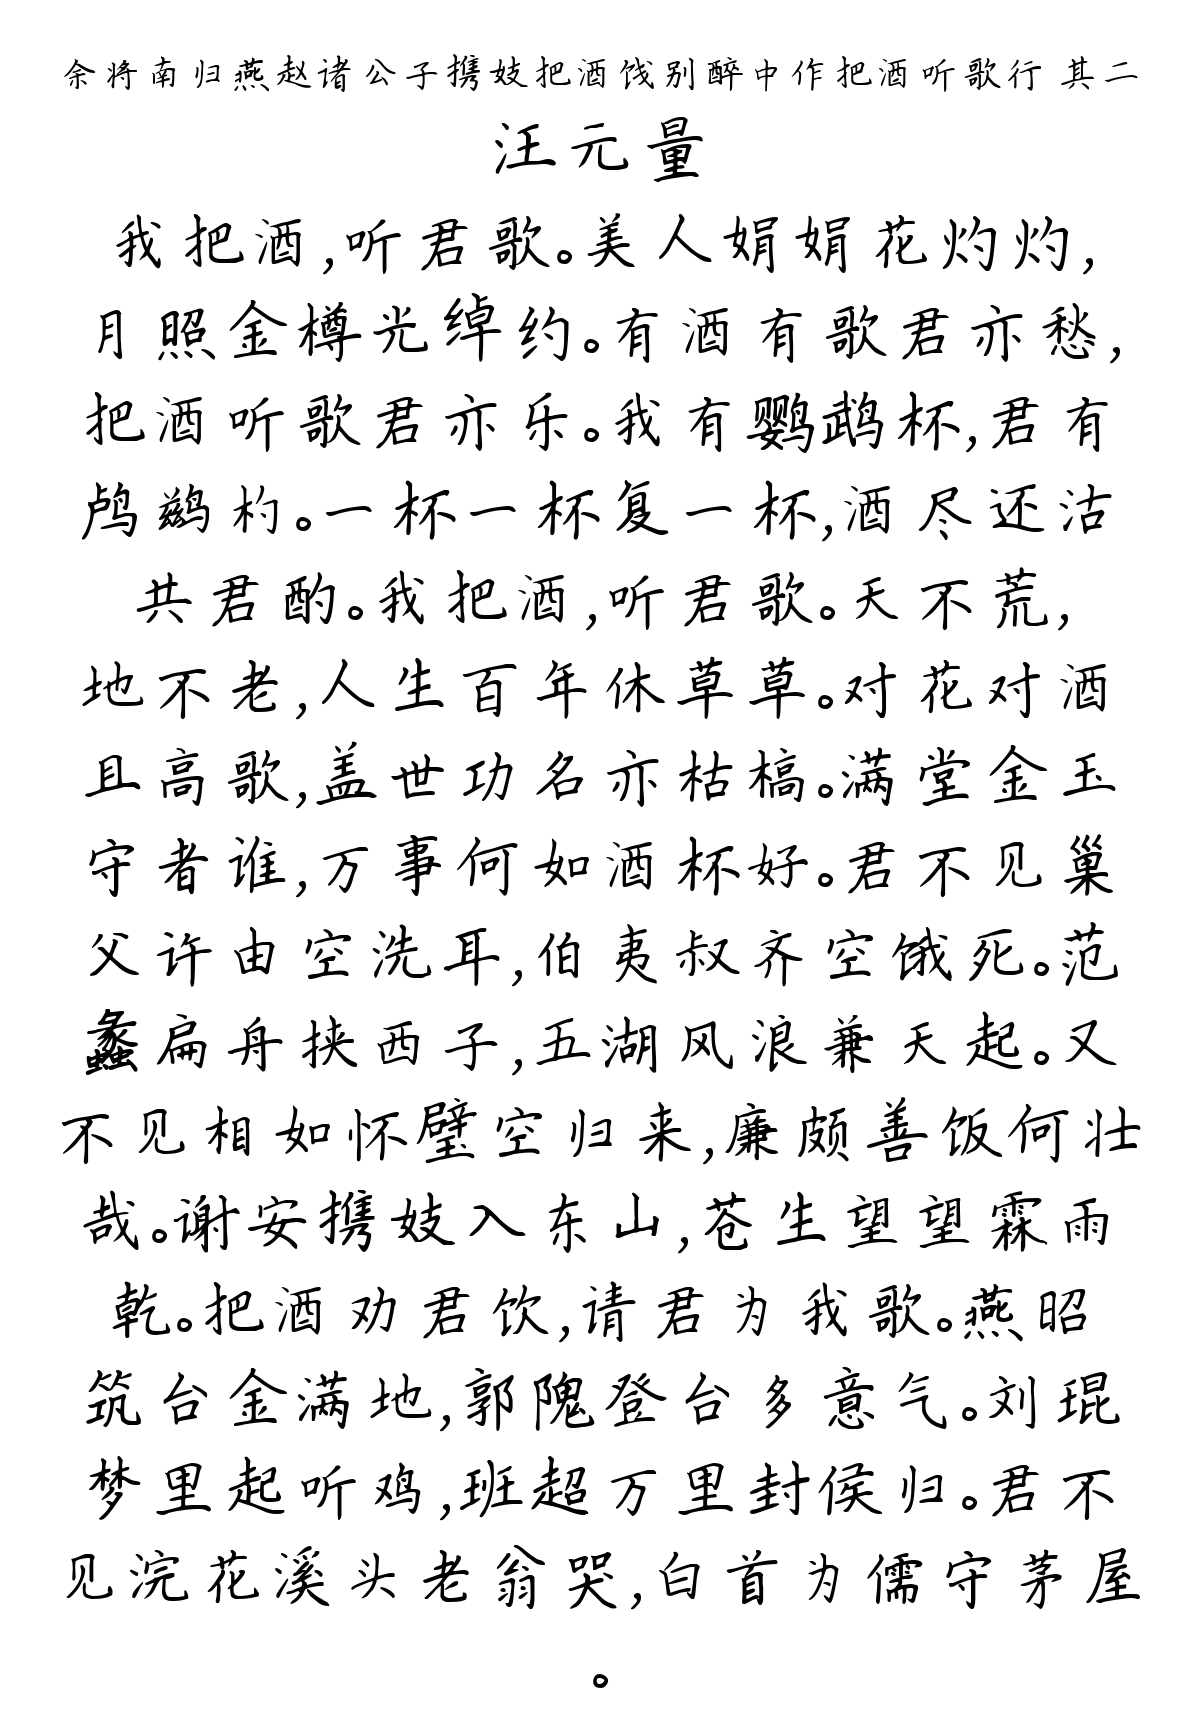 余将南归燕赵诸公子携妓把酒饯别醉中作把酒听歌行 其二
汪元量
我把酒,听君歌。美人娟娟花灼灼,
月照金樽光绰约。有酒有歌君亦愁,
把酒听歌君亦乐。我有鹦鹉杯,君有
鸬鹚杓。一杯一杯复一杯,酒尽还沽
共君酌。我把酒,听君歌。天不荒,
地不老,人生百年休草草。对花对酒
且高歌,盖世功名亦枯槁。满堂金玉
守者谁,万事何如酒杯好。君不见巢
父许由空洗耳,伯夷叔齐空饿死。范
蠡扁舟挟西子,五湖风浪兼天起。又
不见相如怀璧空归来,廉颇善饭何壮
哉。谢安携妓入东山,苍生望望霖雨
乾。把酒劝君饮,请君为我歌。燕昭
筑台金满地,郭隗登台多意气。刘琨
梦里起听鸡,班超万里封侯归。君不
见浣花溪头老翁哭,白首为儒守茅屋
。